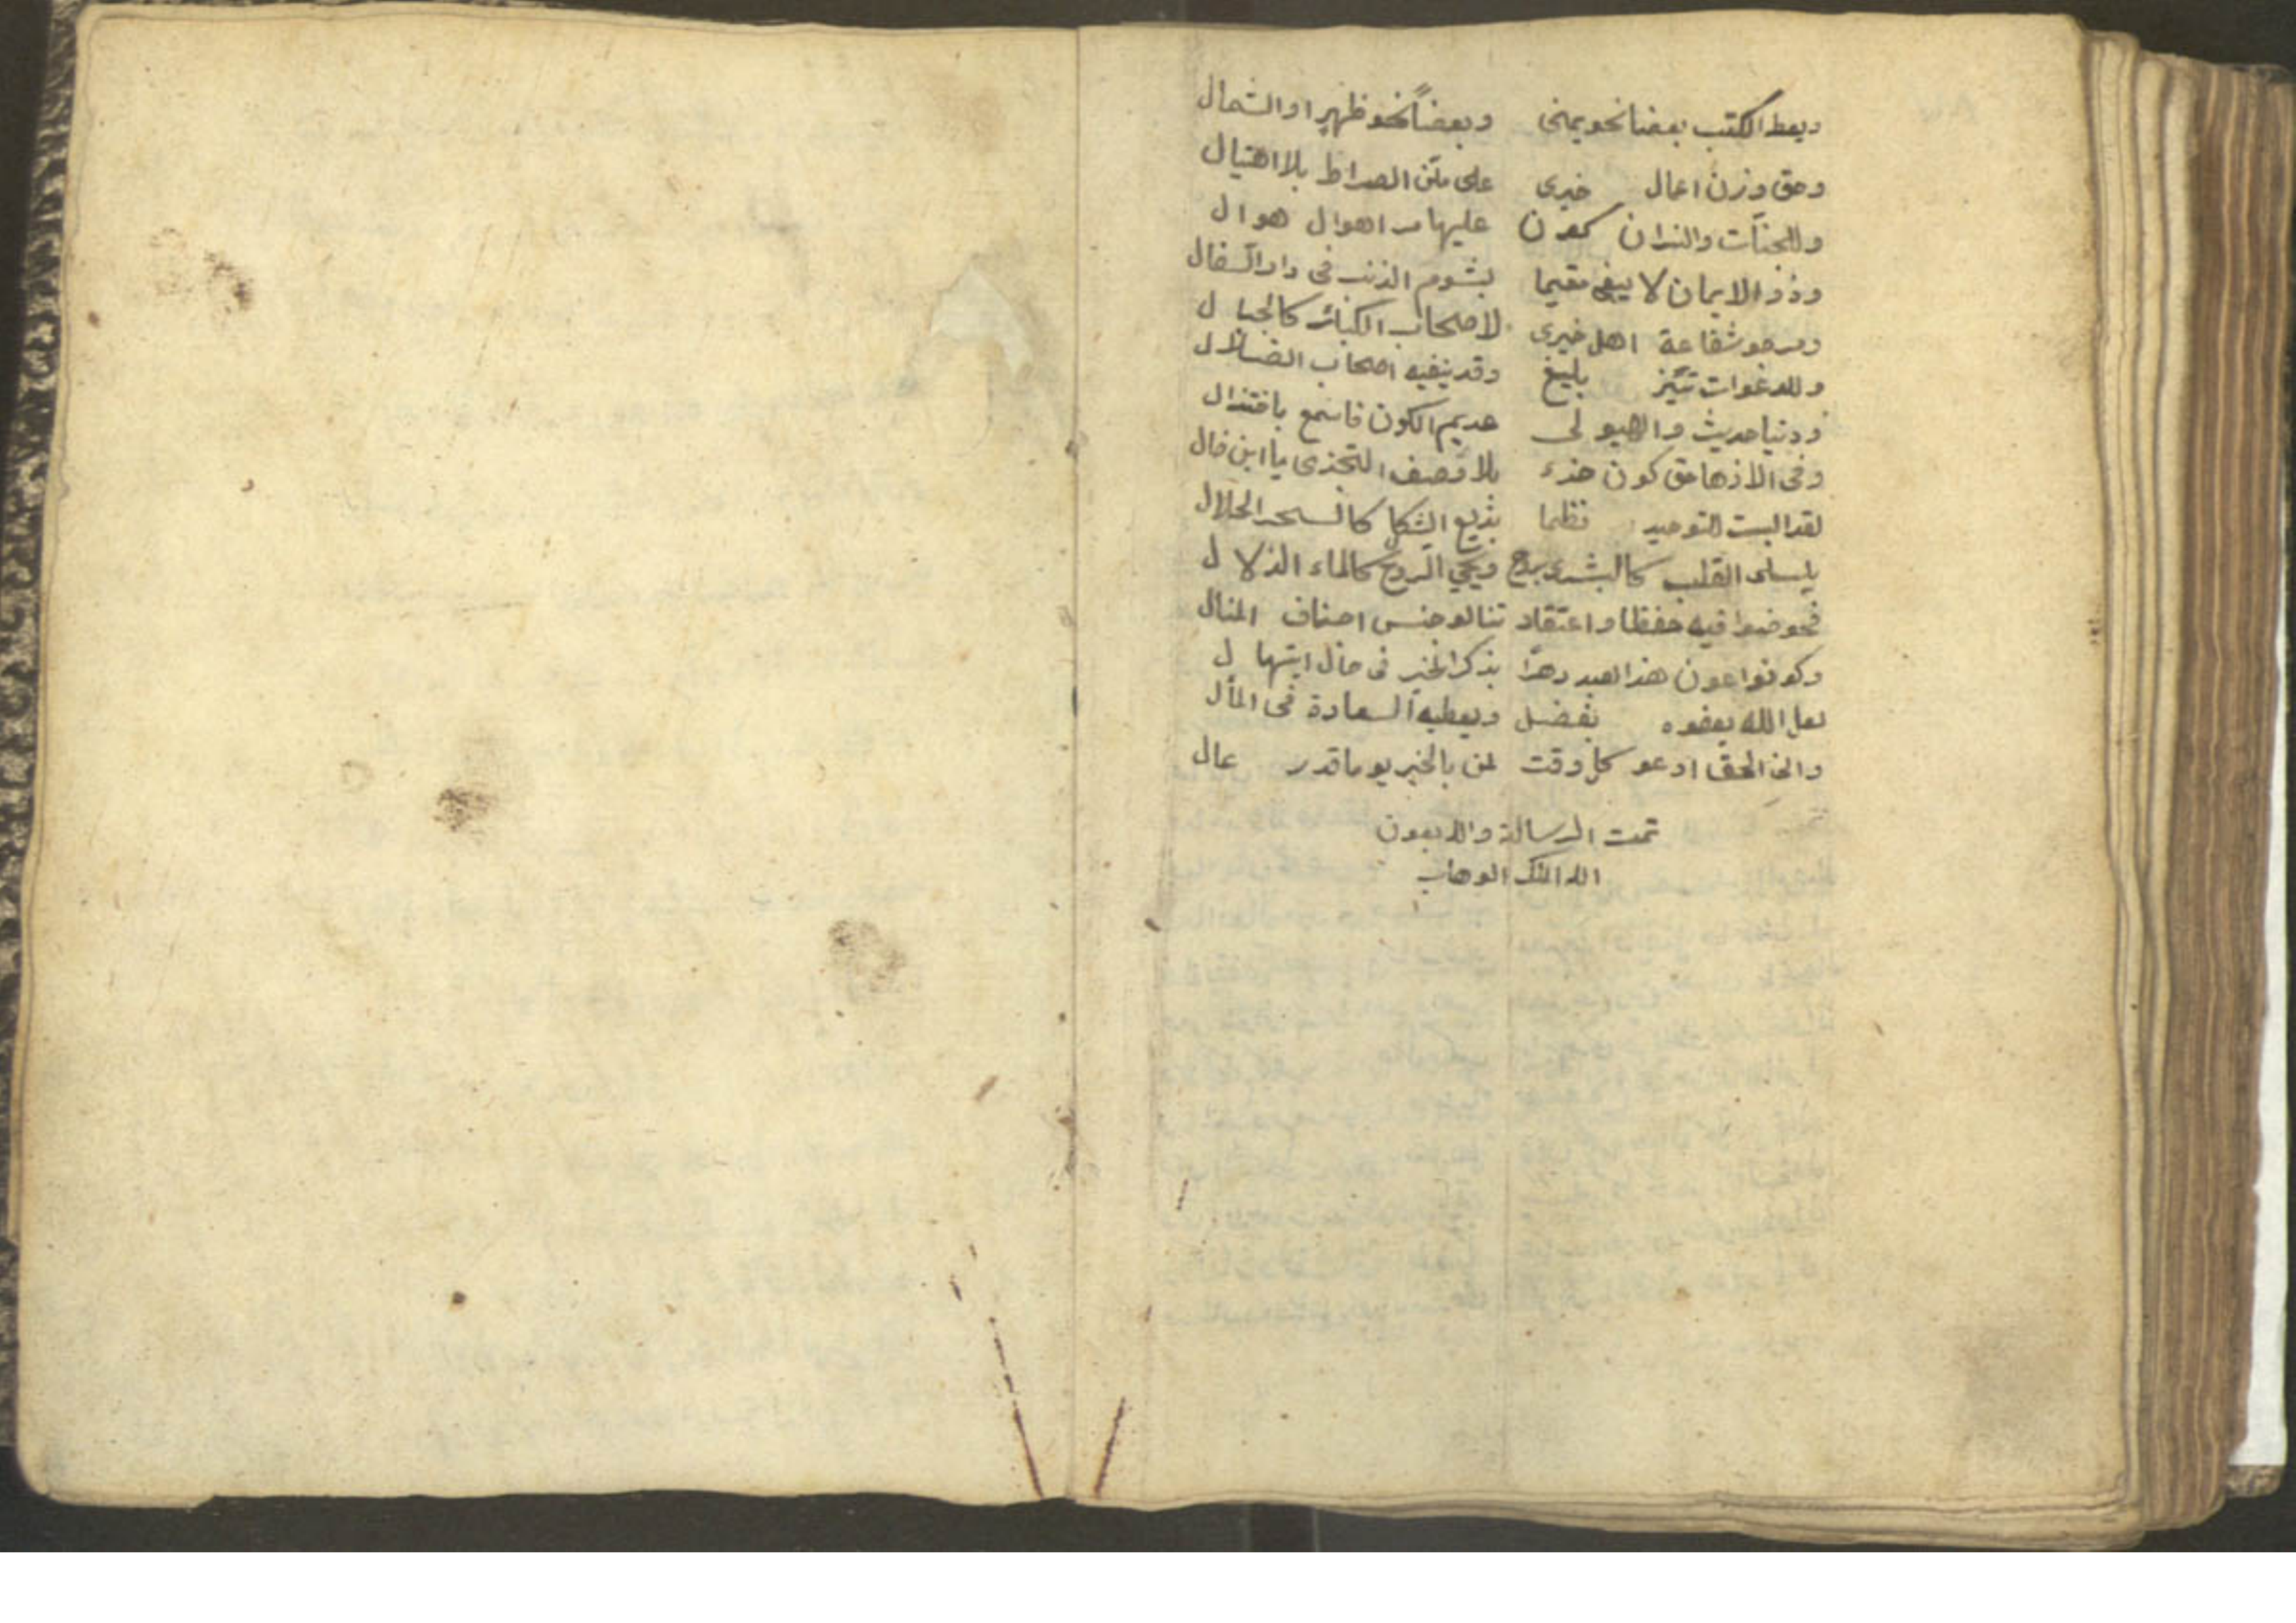 ويعط الكتب بعضا نحو يمنى وبعضاً نحو ظهر او الشمال
وحق وزن اعمال خيرى على متن الصراط بلا اهتيال
وللجنّات والنيران كون عليها مر اهوال هوال
وذو الايمان لا يبقى مقيما بشوم الذنب فى دار السفال
ومرجو شفاعة اهل خيرى لاصحاب الكبائر كالجبال
وللدعوات تٵثير بليغ وقد ينفيه اصحاب الضلال
ودنيا حديث والهيولى عديم الكون فاسمع باختذال
وفى الاذها حق كون جزء بلا وصف التجزى يا ابن خال
لقد البست التوحيد نظما بديع الشكل كالسحر الحلال
يسلى القلب كالبشرى بروح ويحي الروح كالماء الزلال
فخوضوا فيه حفظا واعتقاد تنالو جنس اصناف المنال
وكونوا عون هذا العبد دهرًا بذكر الخير فى حال ابتهال
لعل الله يعفوه بفضل ويعطيه السعادة فى المأل
وانى الحق ادعو كل وقت لمن بالخير يوما قدر عال
تمت الرسالة والله بعون
الله الملك الوهاب